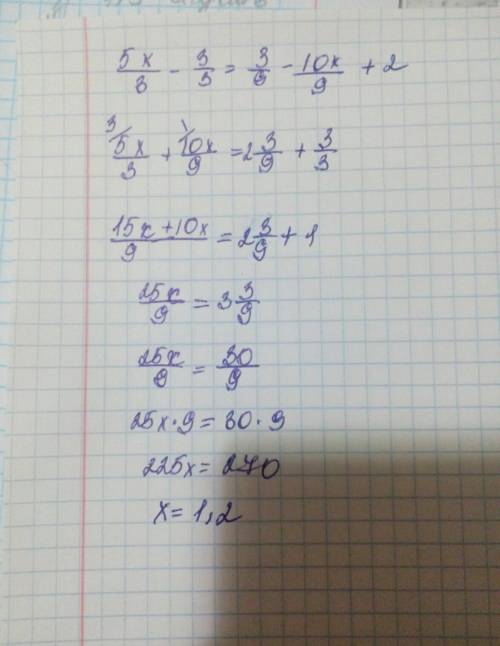 5x/3 - 3/3 = 3/9 - 10x/9 + 2
3/ 5x/3 + 1/ 10x/9 = 2 3/9 + 3/3
15x+10x/9 = 2 3/9 + 1
25x/9 = 3 3/9
25x/9 = 30/9
25x·9 = 30·9
225x = 270
x = 1,2